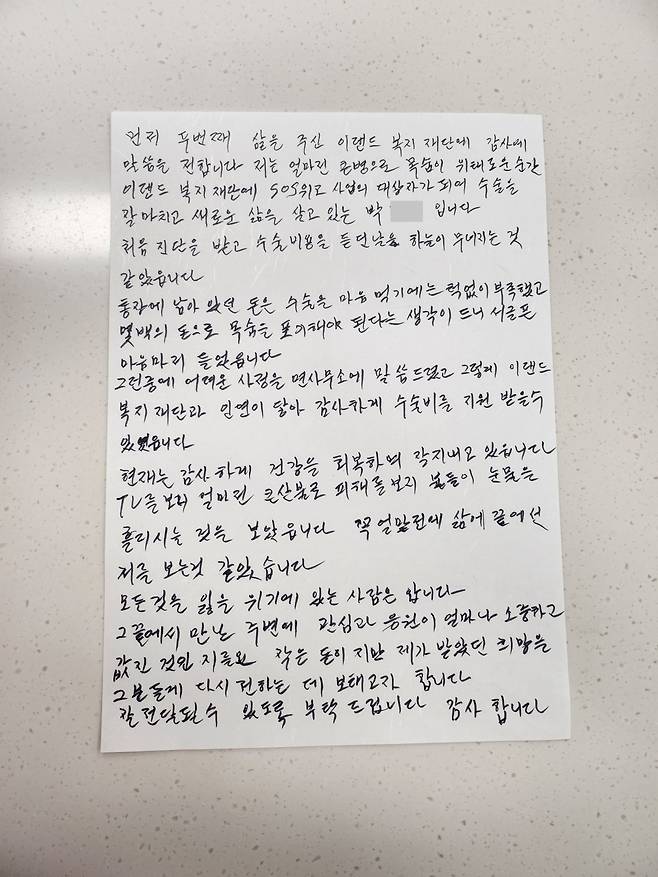 먼저 두번째 삶을 주신 이랜드 복지 재단에 감사에
말씀을 전합니다 저는 얼마전 큰병으로 목숨이 위태로운 순간
이랜드 복지 재단에 SOS위고 사업의 대상자가 되어 수술을
잘 마치고 새로운 삶을 살고 있는 박 입니다
처음 진단을 받고 수술비용을 듣던날 하늘이 무너지는 것
같았읍니다
통장에 남아 있던 돈은 수술을 마음 먹기에는 턱없이 부족했고
몇백의 돈으로 목숨을 포기해야 된다는 생각이 드니 서글픈
마음마저 들었읍니다
그런중에 어려운 사정을 면사무소에 말씀드렸고 그렇게 이랜드
복지 재단과 인연이 닿아 감사하게 수술비를 지원 받을수
있었읍니다
현재는 감사하게 건강을 회복하며 잘지내고 있읍니다
TV를 보니 얼마전 큰산불로 피해를 보신 분들이 눈물을
흘리시는 것을 보았읍니다 꼭 얼마전에 삶에 끝에선
저를 보는것 같았습니다
모든것을 잃을 위기에 있는 사람은 압니다
그 끝에서 만난 주변에 관심과 응원이 얼마나 소중하고
값진 것인 지를요 작은 돈이 지만 제가 받았던 희망을
그분들께 다시 전하는 데 보태고자 합니다
잘 전달될수 있도록 부탁 드립니다 감사 합니다